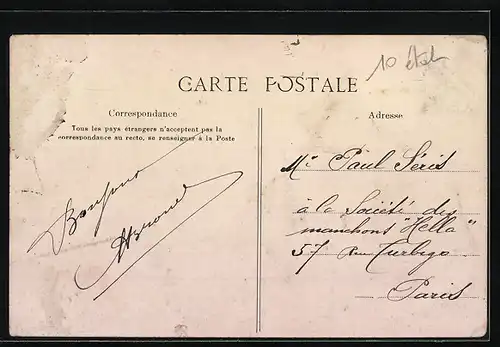 10
CARTE POSTALE
Correspondance
Tous les pays étrangers n'acceptent pas la
correspondance au recto, se renseigner à la Poste
Bonjour
Adresse
Mr Paul Séris
à la Société des
manchons "Hella"
57 Rue Turbigo
Paris